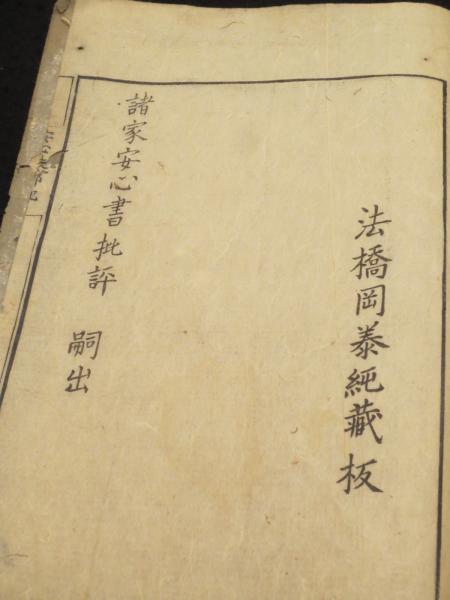 法橋岡泰純藏板
諸家安心書批評 嗣出